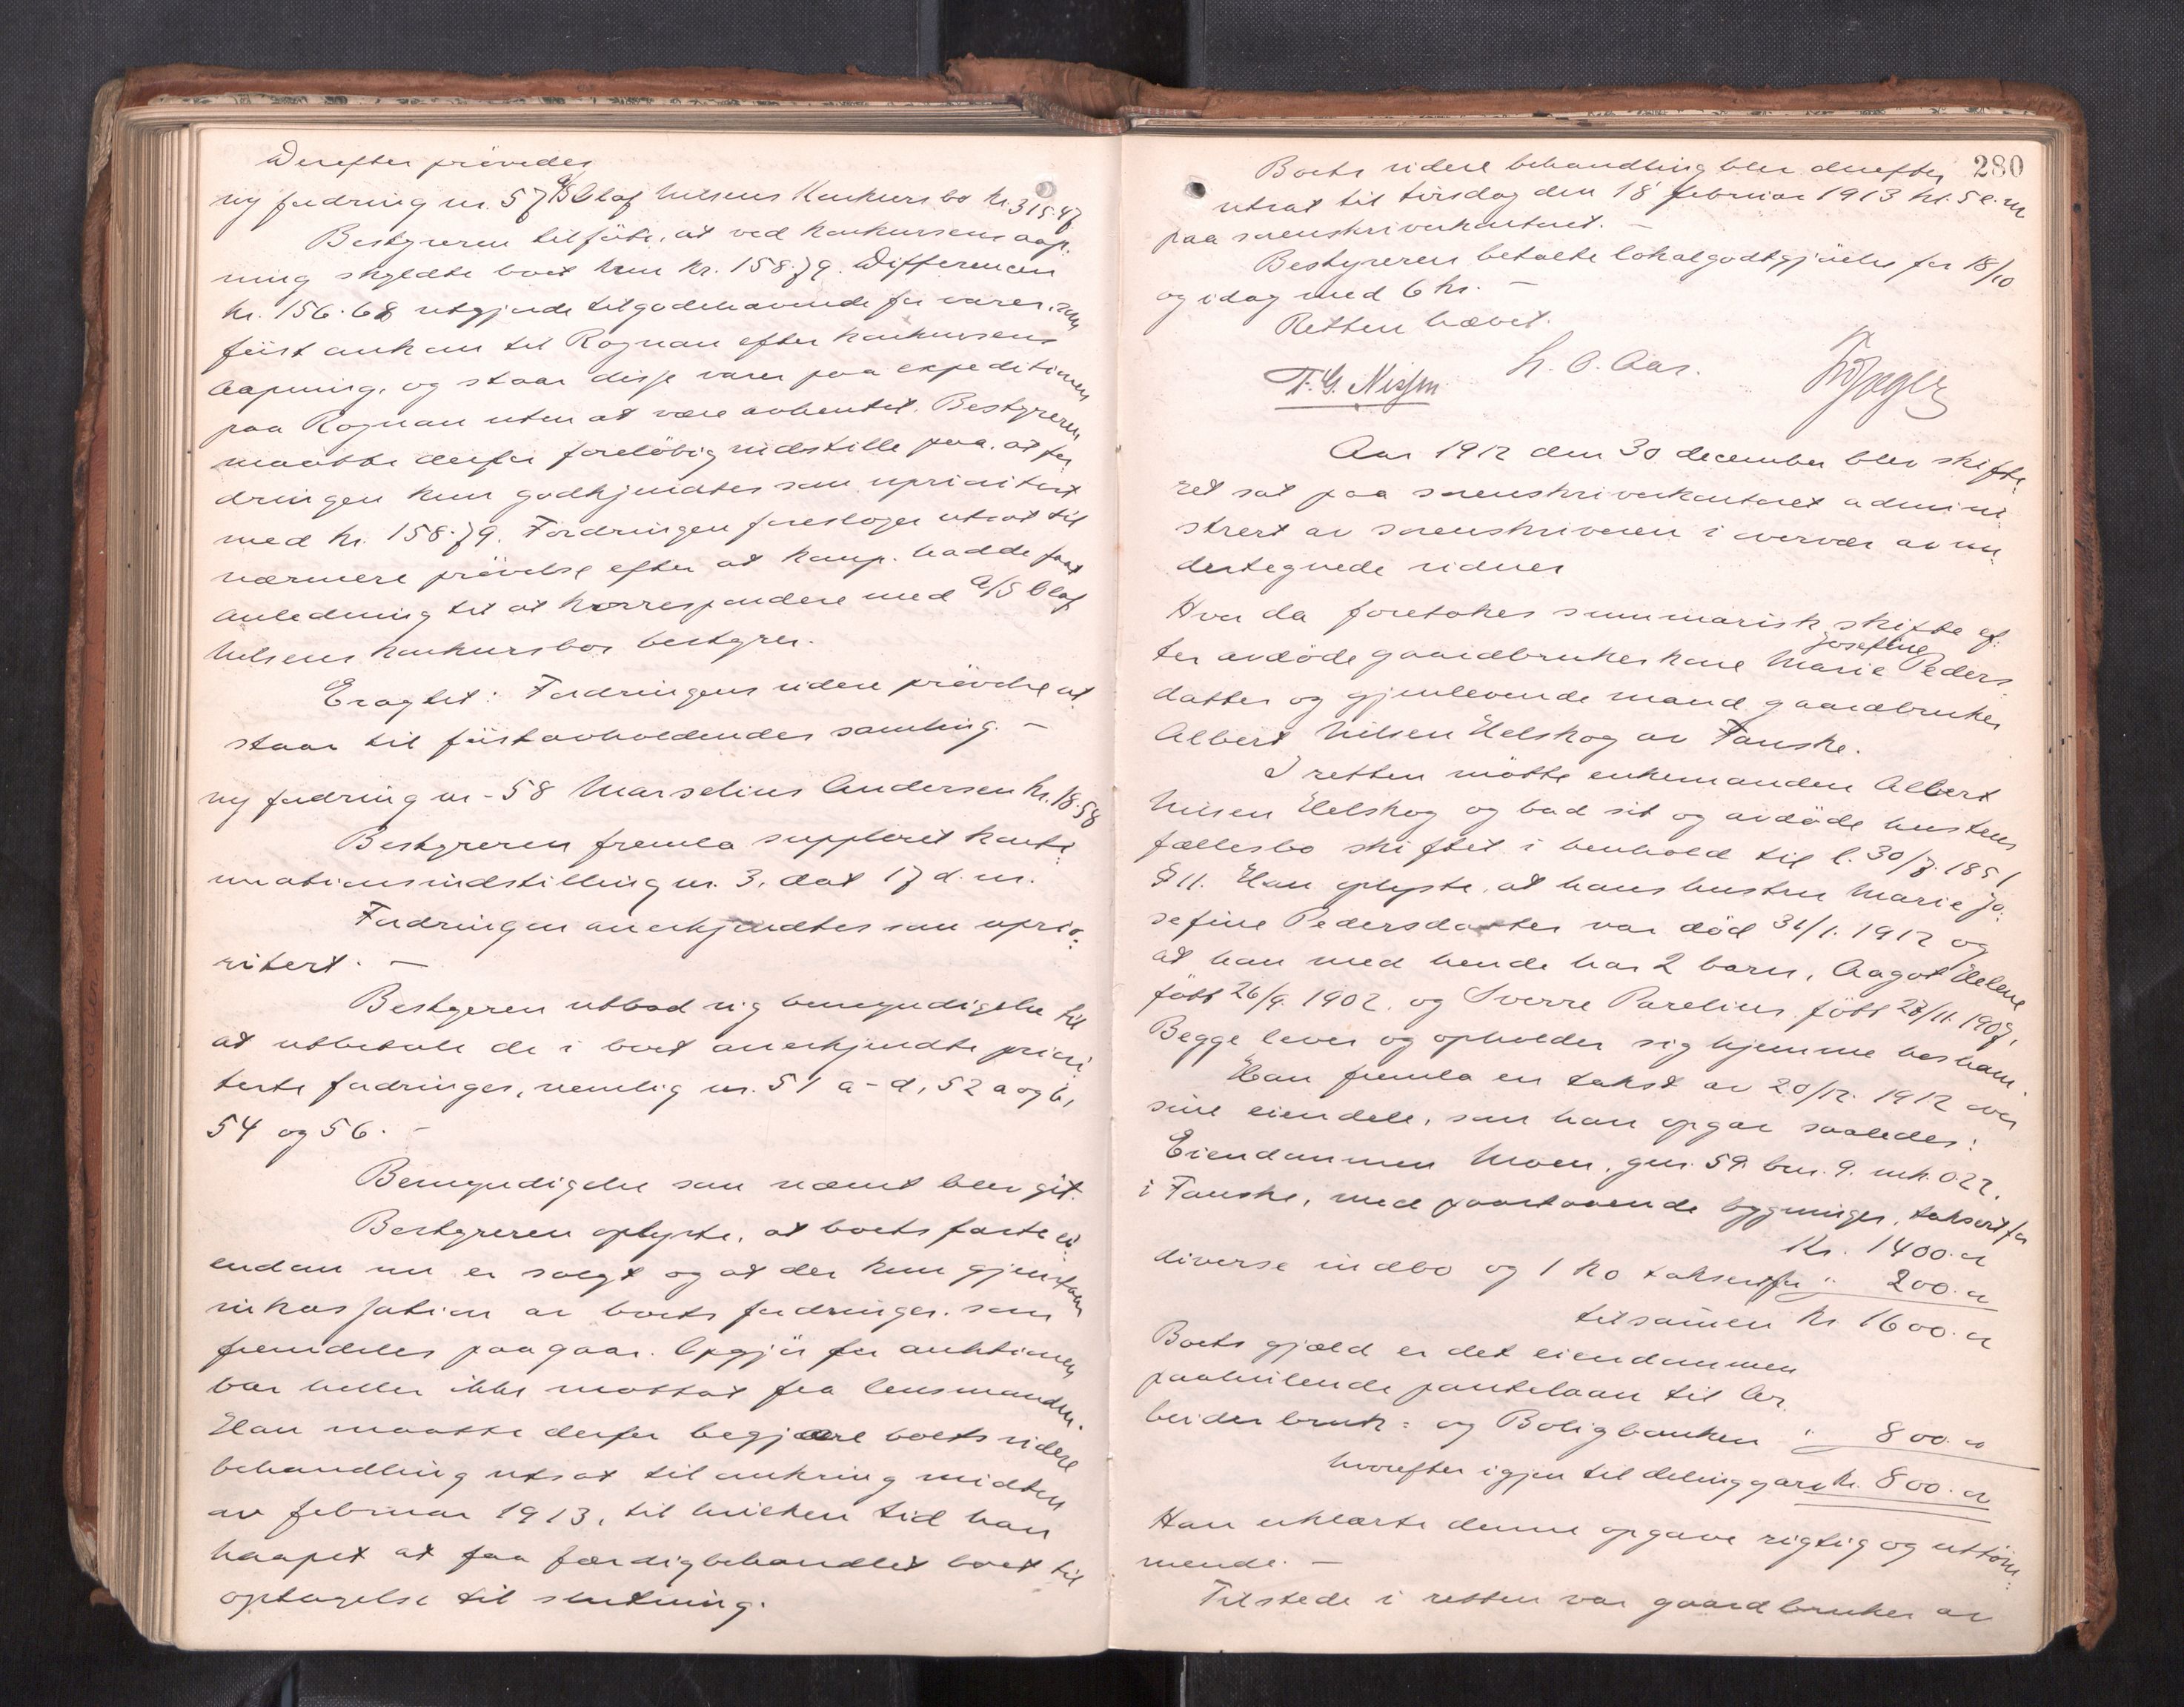 Derefter prövedes
ny fordring nr. 57 A/S Olaf Nilsens Konkursbo kr. 315.47
Bestyreren tilföiet, at ved konkursens aap-
ning skyldte boet kun kr. 158.79. Differencen
kr. 156.68 utgjorde tilgodehavende for varer, som
först ankom til Rognan efter konkursens
aapning, og staar disse varer paa expeditionen
paa Rognan uten at være avhentet. Bestyreren
maatte derfor foreløbig indstille paa, at for-
dringen kun godkjendtes som uprioritert
med kr. 158.79. Fordringen foresloges utsat til
nærmere prövelse efter at komp. hadde faat
anledning til at korrespondere med A/S Olaf
Nilsens konkursbos bestyrer.
Eragtet: Fordringens videre prövelse ut-
staar til först avholdendes samling. –
ny fordring nr. 58 Marselius Andersen kr. 18.58
Bestyreren fremla suppleret konti-
nuationsindstilling nr. 3, dat 17 d. m.
Fordringen anerkjendtes som uprio-
ritert. –
Bestyreren utbad sig bemyndigelse til
at utbetale de i boet anerkjendte priori-
terte fordringer, nemlig nr. 51 a-d, 52 a og b,
54 og 56. –
Bemyndigelse som nævnt blev git.
Bestyreren oplyste, at boets faste ei-
endom nu er solgt og at der kun gjenstaar
inkassation av boets fordringer, som
fremdeles paagaar. Opgjör for auktionen
var heller ikke mottat fra lensmanden.
Han maatte derfor begjære boets videre
behandling utsat til omkring midten
av februar 1913, til hvilken tid han
haapet at faa færdigbehandlet boet til
optagelse til slutning.
280
Boets videre behandling blev derefter
utsat til tirsdag den 18 februar 1913 kl. 5 e.m.
paa sorenskriverkontoret. –
Bestyreren betalte lokalgodtgjörelse for 18/10
og idag med 6 kr. –
Retten hævet.
F. G. Nissen. L. O. Aas.
Aar 1912 den 30 december blev skifte-
ret sat paa sorenskriverkontoret admini-
strert av sorenskriveren i overvær av un-
dertegnede vidner
Hvor da foretokes summarisk skifte ef-
ter avdöde gaardbrukerkone Marie Josefine Peders-
datter og gjenlevende mand gaardbruker
Albert Nilsen Helskog av Fauske.
I retten mötte enkemanden Albert
Nilsen Helskog og bad sit og avdöde hustrus
fællesbo skiftet i henhold til l. 30/7. 1851
§ 11. Han oplyste, at hans hustru Marie Jo-
sefine Pedersdatter var död 31/1. 1912 og
at han med hende har 2 barn, Aagot Helene
född 26/9. 1902. og Sverre Parelius född 28/11. 1907,
Begge lever og opholder sig hjemme hos ham.
Han fremla en takst av 20/12. 1912 over
sine eiendele, som han opgav saaledes:
Eiendommen Moen, gnr. 59. bnr. 9. mk. 0.22.
i Fauske, med paastaaende bygninger, taksert for
Kr. 1400.00
diverse indbo og 1 ko taksert for " 200.00
tilsammen kr. 1600.00
Boets gjæld er det eiendommen
paahvilende pantelaan til Ar-
beiderbruk- og Boligbanken " 800.00
hvorefter igjen til deling gaar kr. 800.00
Han erklærte denne opgave rigtig og uttöm-
mende. –
Tilstede i retten var gaardbruker av